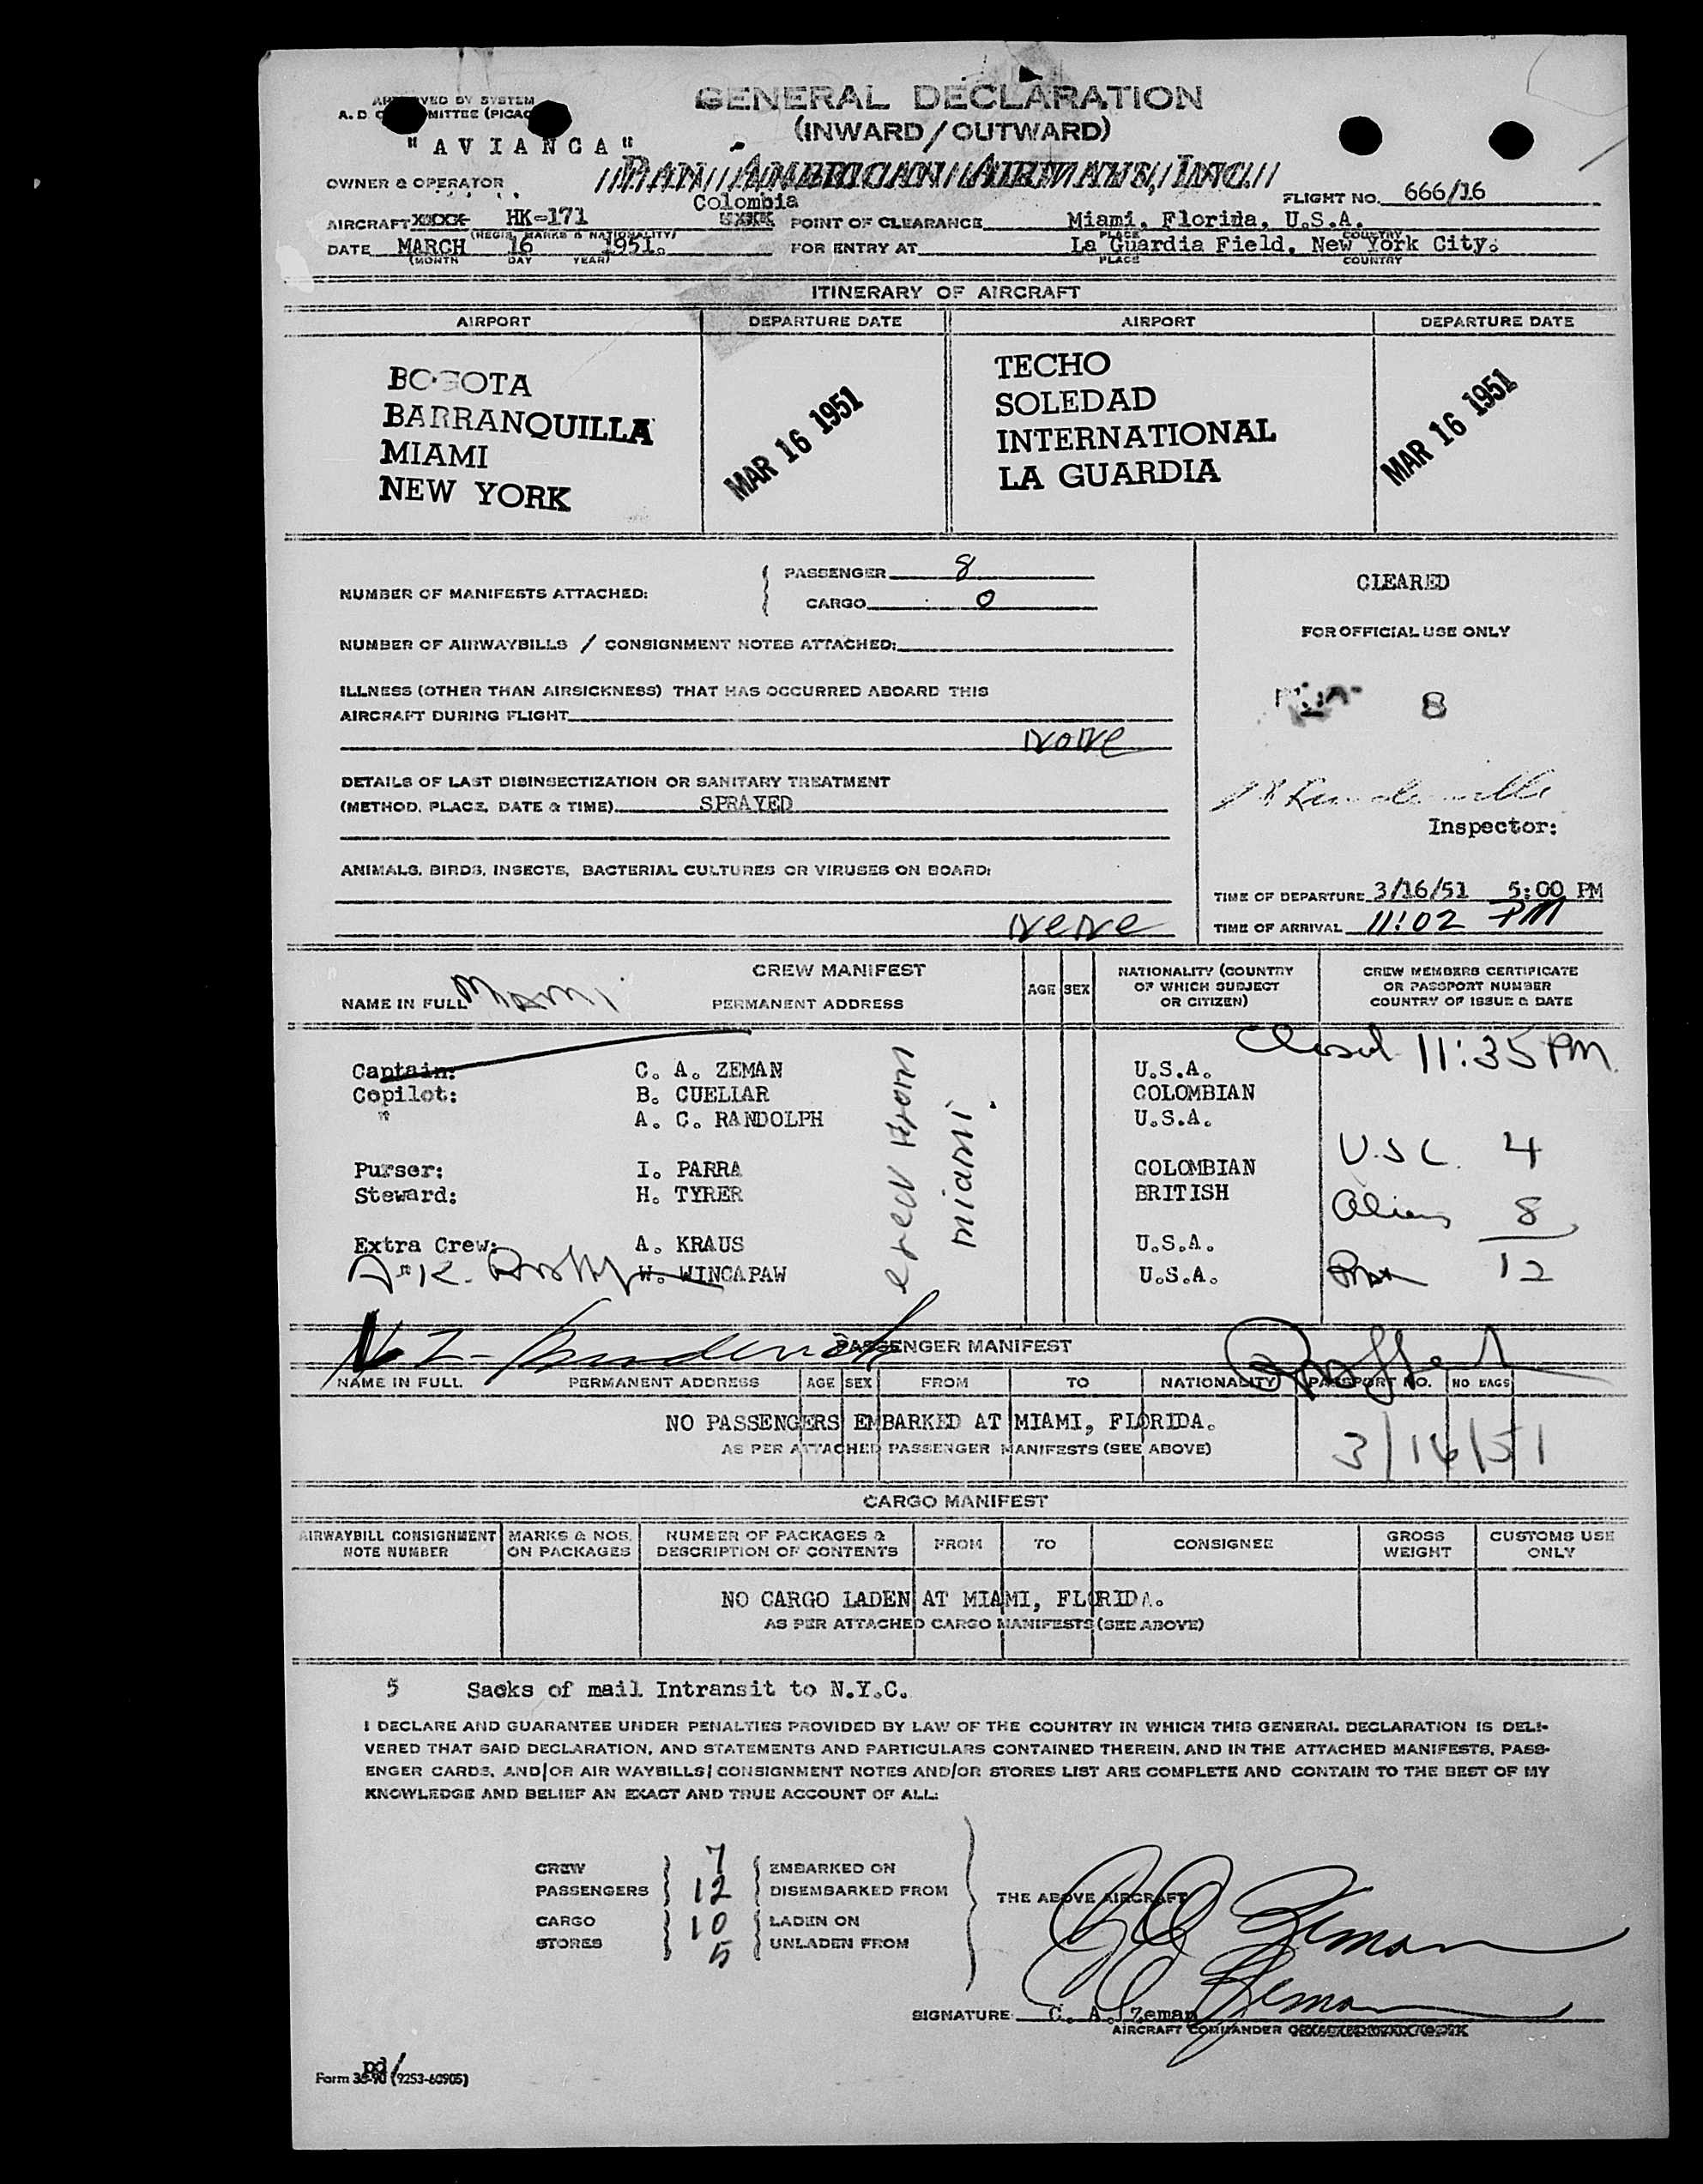 GENERAL DECLARATION
(INWARD/OUTWARD)
"AVIANCA"
PAN AMERICAN AIRWAYS, INC.
OWNER & OPERATOR
FLIGHT NO. 666/16
Colombia
AIRCRAFT HK-171 POINT OF CLEARANCE Miami, Florida, U.S.A.
(REGIS. MARKS & NATIONALITY) PLACE COUNTRY
DATE MARCH 16 1951. FOR ENTRY AT La Guardia Field, New York City.
(MONTH DAY YEAR) PLACE COUNTRY
ITINERARY OF AIRCRAFT
AIRPORT DEPARTURE DATE AIRPORT DEPARTURE DATE
BOGOTA
BARRANQUILLA
MIAMI
NEW YORK
MAR 16 1951
TECHO
SOLEDAD
INTERNATIONAL
LA GUARDIA
MAR 16 1951
NUMBER OF MANIFESTS ATTACHED:
PASSENGER 8
CARGO 0
NUMBER OF AIRWAYBILLS / CONSIGNMENT NOTES ATTACHED:
ILLNESS (OTHER THAN AIRSICKNESS) THAT HAS OCCURRED ABOARD THIS
AIRCRAFT DURING FLIGHT
None
DETAILS OF LAST DISINSECTIZATION OR SANITARY TREATMENT
(METHOD, PLACE, DATE & TIME) SPRAYED
ANIMALS, BIRDS, INSECTS, BACTERIAL CULTURES OR VIRUSES ON BOARD:
None
CLEARED
FOR OFFICIAL USE ONLY
8
Inspector:
TIME OF DEPARTURE 3/16/51 5:00 PM
TIME OF ARRIVAL 11:02 PM
CREW MANIFEST
NAME IN FULL Miami PERMANENT ADDRESS
AGE SEX
NATIONALITY (COUNTRY
OF WHICH SUBJECT
OR CITIZEN)
CREW MEMBERS CERTIFICATE
OR PASSPORT NUMBER
COUNTRY OF ISSUE & DATE
Closed 11:35 PM
Captain: C. A. ZEMAN U.S.A.
Copilot: B. CUELLAR COLOMBIAN
" A. C. RANDOLPH U.S.A.
Purser: I. PARRA COLOMBIAN
Steward: H. TYRER BRITISH
Extra Crew: A. KRAUS U.S.A.
W. WINCAPAW U.S.A.
crew from
miami.
U.S.C. 4
Aliens 8
12
PASSENGER MANIFEST
NAME IN FULL PERMANENT ADDRESS AGE SEX FROM TO NATIONALITY PASSPORT NO. NO BAGS
NO PASSENGERS EMBARKED AT MIAMI, FLORIDA.
AS PER ATTACHED PASSENGER MANIFESTS (SEE ABOVE)
3/16/51
CARGO MANIFEST
AIRWAYBILL CONSIGNMENT
NOTE NUMBER
MARKS & NOS.
ON PACKAGES
NUMBER OF PACKAGES &
DESCRIPTION OF CONTENTS
FROM TO CONSIGNEE
GROSS
WEIGHT
CUSTOMS USE
ONLY
NO CARGO LADEN AT MIAMI, FLORIDA.
AS PER ATTACHED CARGO MANIFESTS (SEE ABOVE)
5 Sacks of mail Intransit to N.Y.C.
I DECLARE AND GUARANTEE UNDER PENALTIES PROVIDED BY LAW OF THE COUNTRY IN WHICH THIS GENERAL DECLARATION IS DELI-
VERED THAT SAID DECLARATION, AND STATEMENTS AND PARTICULARS CONTAINED THEREIN, AND IN THE ATTACHED MANIFESTS, PASS-
ENGER CARDS, AND/OR AIR WAYBILLS/CONSIGNMENT NOTES AND/OR STORES LIST ARE COMPLETE AND CONTAIN TO THE BEST OF MY
KNOWLEDGE AND BELIEF AN EXACT AND TRUE ACCOUNT OF ALL:
CREW 7 EMBARKED ON
PASSENGERS 12 DISEMBARKED FROM
CARGO 10 LADEN ON
STORES 5 UNLADEN FROM
THE ABOVE AIRCRAFT
C A Zeman
C A Zeman
SIGNATURE: C. A. Zeman
AIRCRAFT COMMANDER
pd/
Form 35-90 (9253-60905)